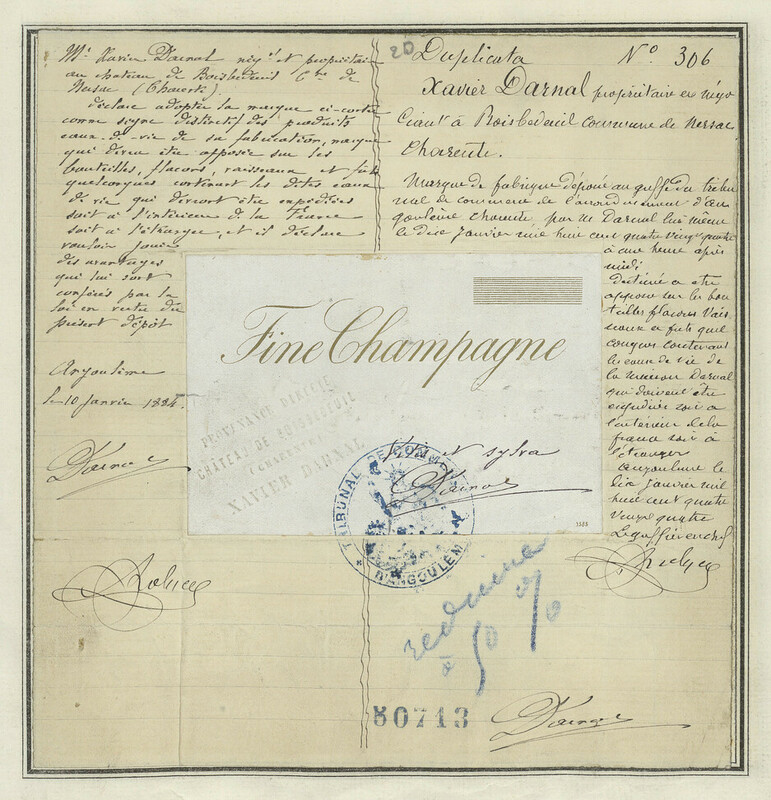 Mr Xavier Darnal négt et propriétaire
au chateau de Boisbedeuil Cne de
Nersac (Charente).
déclare adopter la marque ci-contre
comme signe distinctif des produits
eaux-de-vie de sa fabrication, marque
qui devra être apposée sur les
bouteilles, flacons, vaisseaux et fûts
quelconques contenant les dites eaux
de vie qui devront être expédiées
soit à l'intérieur de la France
soit à l'étranger, et il déclare
vouloir jouir
des avantages
qui lui sont
conférés par la
loi en vertu du
présent dépôt
Angoulême
le 10 Janvier 1884.
Darnal
20
Duplicata No 306
Xavier Darnal propriétaire et négo
ciant à Boisbedeuil commune de Nersac
Charente.
Marque de fabrique déposée au greffe du tribu
nal de commerce de l'arrondissement d'an
goulême charente par M Darnal lui même
le dix Janvier mil huit cent quatre vingt quatre
à une heure après
midi
Destinée a être
apposée sur les bou
teilles flacons vais
seaux et futs quel
conques contenant
les eaux de vie de
la maison Darnal
qui doivent être
expédiées soit a
l'intérieur de la
france soit à
l'étranger
angoulême le
dix janvier mil
huit cent quatre
vingt quatre
Le greffier en chef
Fine Champagne
PROVENANCE DIRECTE
CHÂTEAU DE BOISBEDEUIL
(CHARENTE)
XAVIER DARNAL
sylva
Darnal
TRIBUNAL DE COMMERCE
D'ANGOULÊME
reduire
à 50 %
80713
Darnal